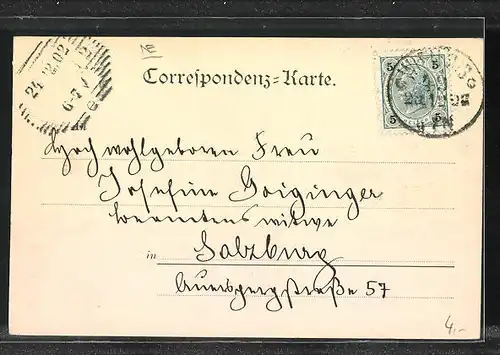 NE
Correspondenz-Karte.
24 2 02
6-7 V
5 5
5 5
An
Hochwohlgeboren Frau
Josefine Goiginger
Beamtenswitwe
in Salzburg
Auerspergstraße 57
4,-